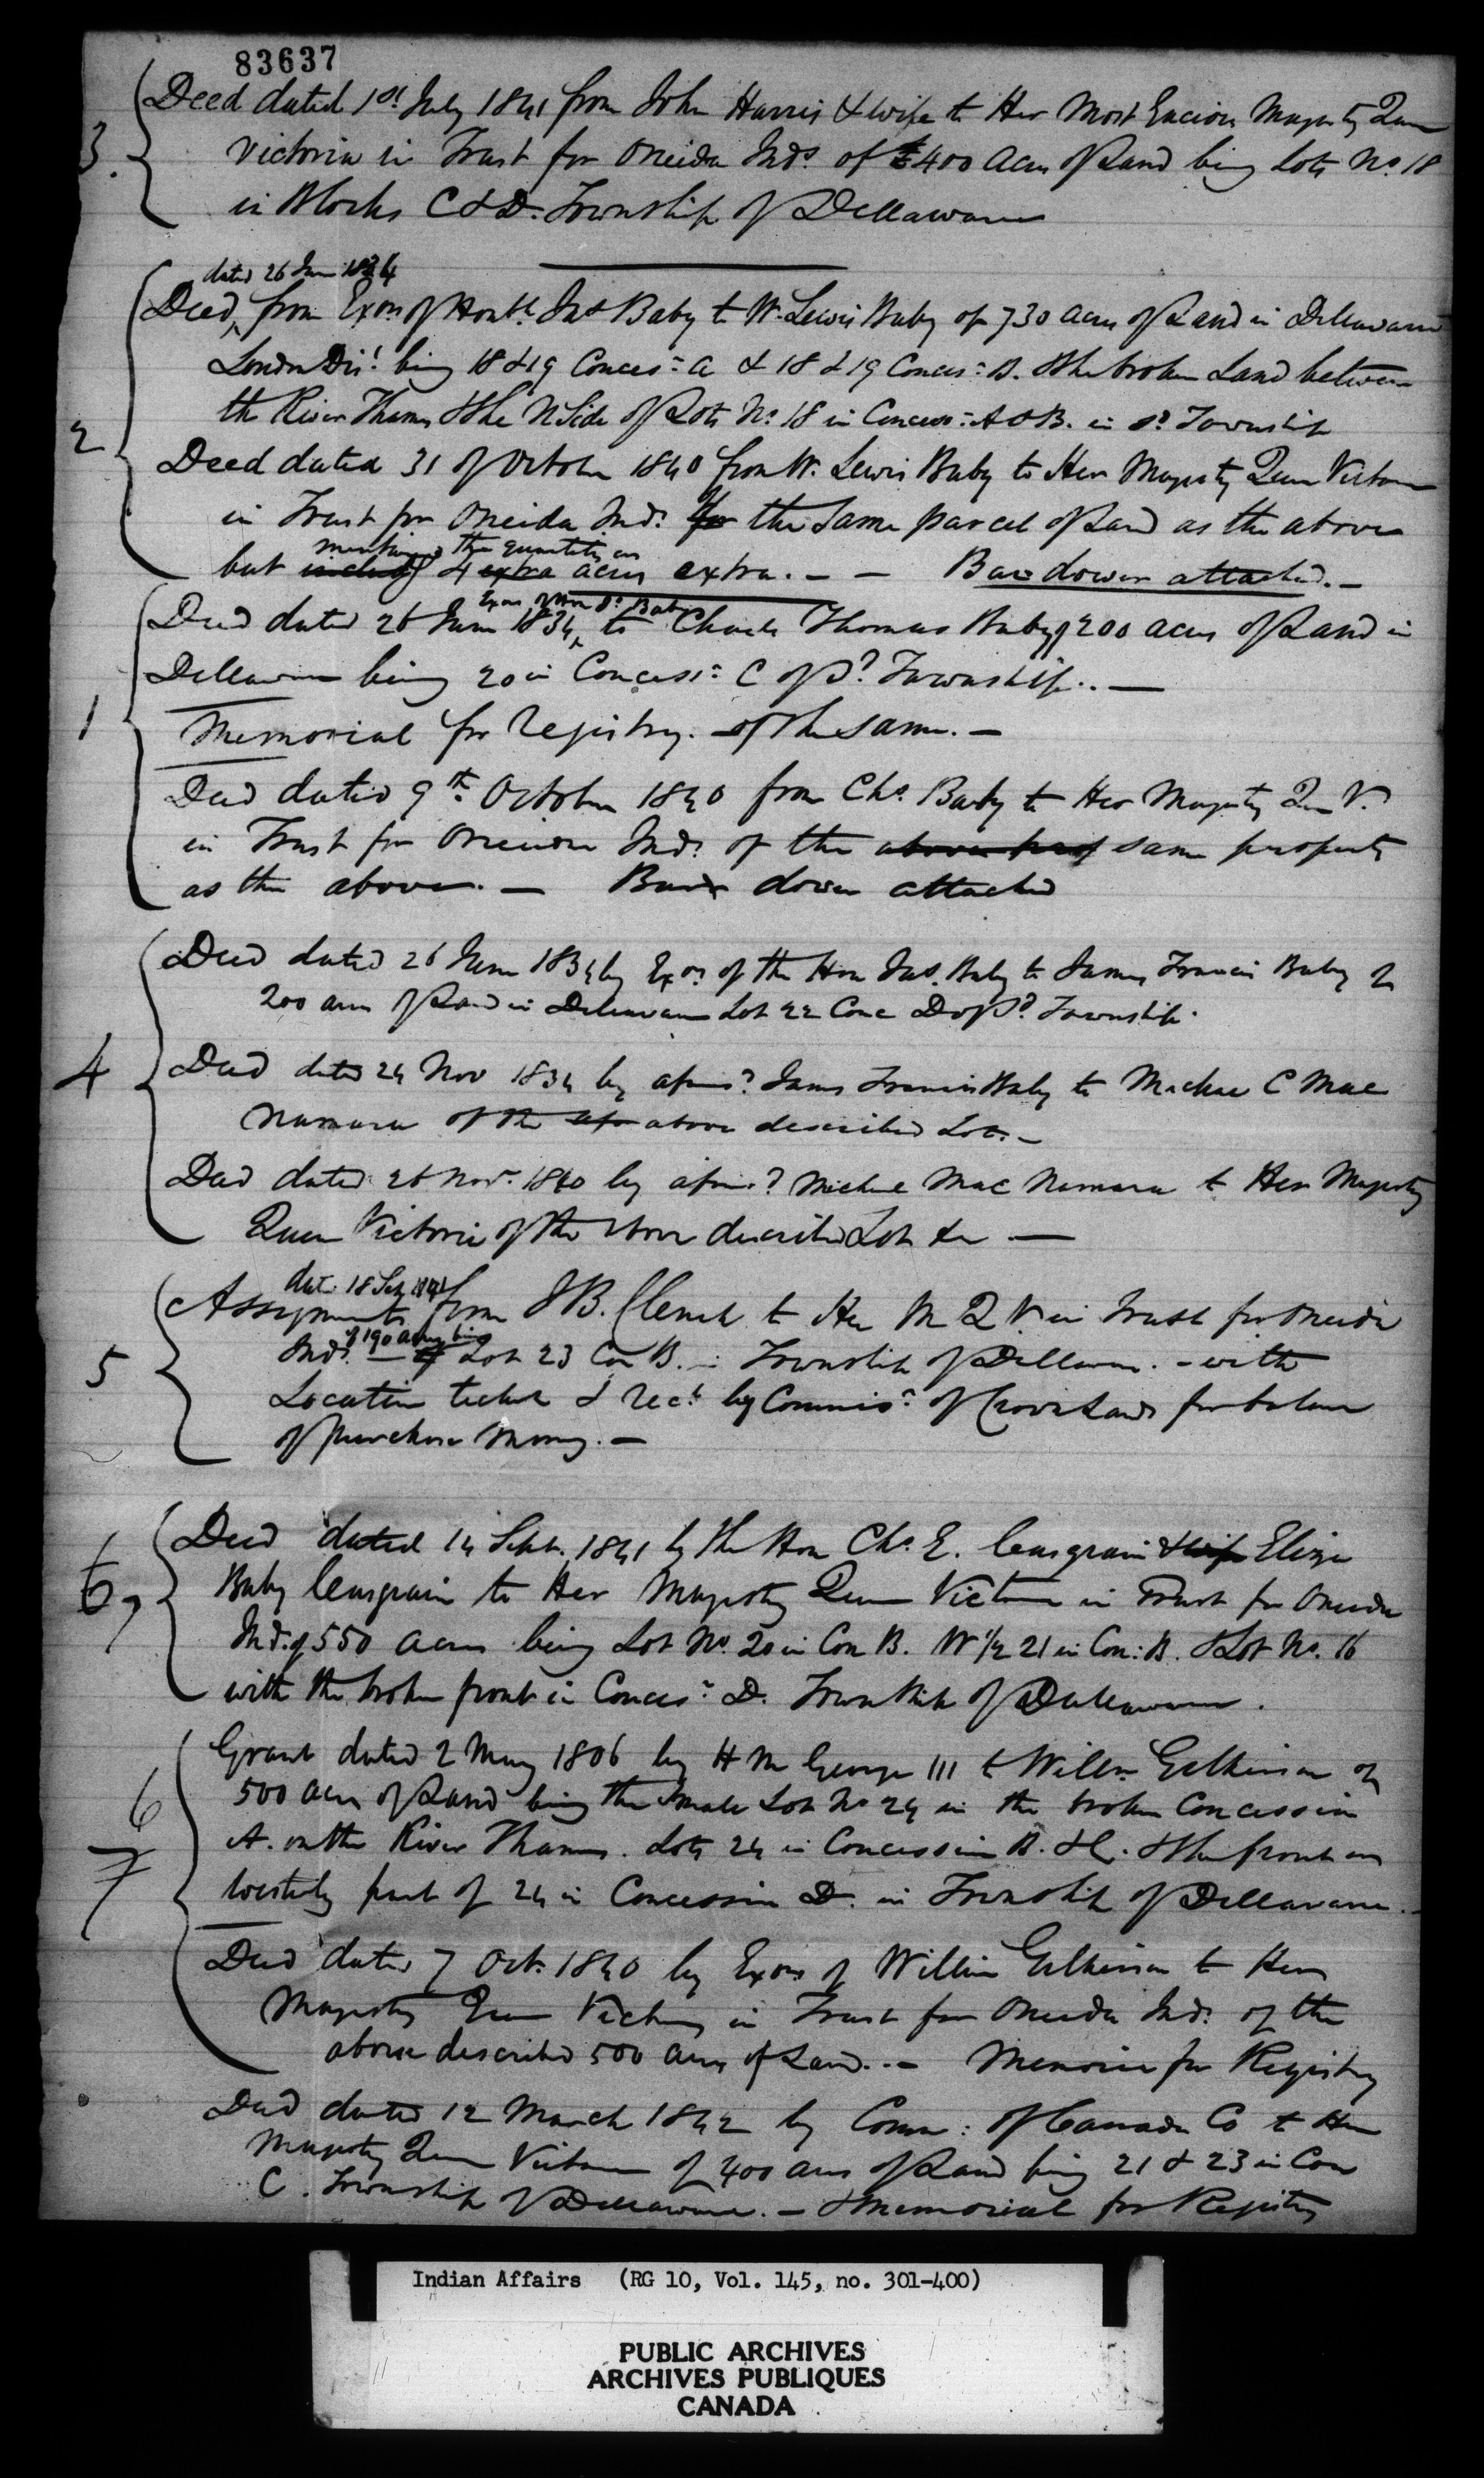 83637
3. Deed dated 1st July 1841 from John Harris & wife to Her Most Gracious Majesty Queen
Victoria in Trust for Oneida Inds. of 400 Acres of Land being Lots No. 18
in Blocks C & D. Township of Dellaware
dated 26 June 1834
Deed, from Exors of Honble. Jas Baby to W. Lewis Baby of 730 acres of Land in Dellaware
London Dist. being 18 & 19 Conces: A & 18 & 19 Conces: B. & the broken Land between
the River Thames & the N Side of Lots No. 18 in Concess: A & B. in sd. Township
2 Deed dated 31 of October 1840 from W. Lewis Baby to Her Majesty Queen Victoria
in Trust for Oneida Inds. for the same parcel of Land as the above
mentioning the quantity as
but includg 4 extra acres extra. - - Bar dower attached. -
Exors of Hon Js. Baby
Deed dated 26 June 1834, to Charles Thomas Baby of 200 acres of Land in
Dellaware being 20 in Concess: C of sd. Township. —
1 Memorial for Registry. of the same. —
Deed dated 9th. October 1840 from Chs. Baby to Her Majesty Qn V.
in Trust for Oneida Inds. of the above prop same property
as the above. — Bar dower attached
Deed dated 26 June 1834 by Exors of the Hon Jas. Baby to James Francis Baby of
200 acres of Land in Delaware Lot 22 Conc D of sd. Township.
4 Deed dated 24 Nov 1834 by aforesd. James Francis Baby to Michael C Mac
Namara of the afo above described Lot. —
Deed dated 26 Nov. 1840 by aforesd. Michael Mac Namara to Her Majesty
Queen Victoria of the above described Lot &c —
date 18 Sep 1841
Assignment from J B. Clench to Her M Q V. in Trust for Oneida
of 190 acres being
5 Inds. — of Lot 23 Con B. in Township of Dellaware. - with
Location ticket & rect. by Commisr. of Crown Lands for balance
of purchase money. —
Deed dated 14 Sept. 1841 by the Hon Chs. E. Casgrain & wife Eliza
6, Baby Casgrain to Her Majesty Queen Victoria in Trust for Oneida
Inds. of 550 acres being Lot No. 20 in Con B. W 1/2 21 in Con: B. & Lot No. 16
with the broken front in Conces: D. Township of Dellaware.
Grant dated 2 May 1806 by H M George III to Willm Gilkinson of
6 500 acres of Land being the small Lot No 24 in the broken Concession
7 A. on the River Thames. Lots 24 in Concession B. & C. & the front or
westerly part of 24 in Concession D. in Township of Dellaware.
Deed dated 7 Oct. 1840 by Exors of William Gilkinson to Her
Majesty Queen Victoria in Trust for Oneida Inds. of the
above described 500 acres of Land. - Memorial for Registry
Deed dated 12 March 1842 by Comm: of Canada Co to Her
Majesty Queen Victoria of 400 acres of Land being 21 & 23 in Con
C. Township of Dellaware. — & Memorial for Registry
Indian Affairs (RG 10, Vol. 145, no. 301-400)
PUBLIC ARCHIVES
ARCHIVES PUBLIQUES
CANADA